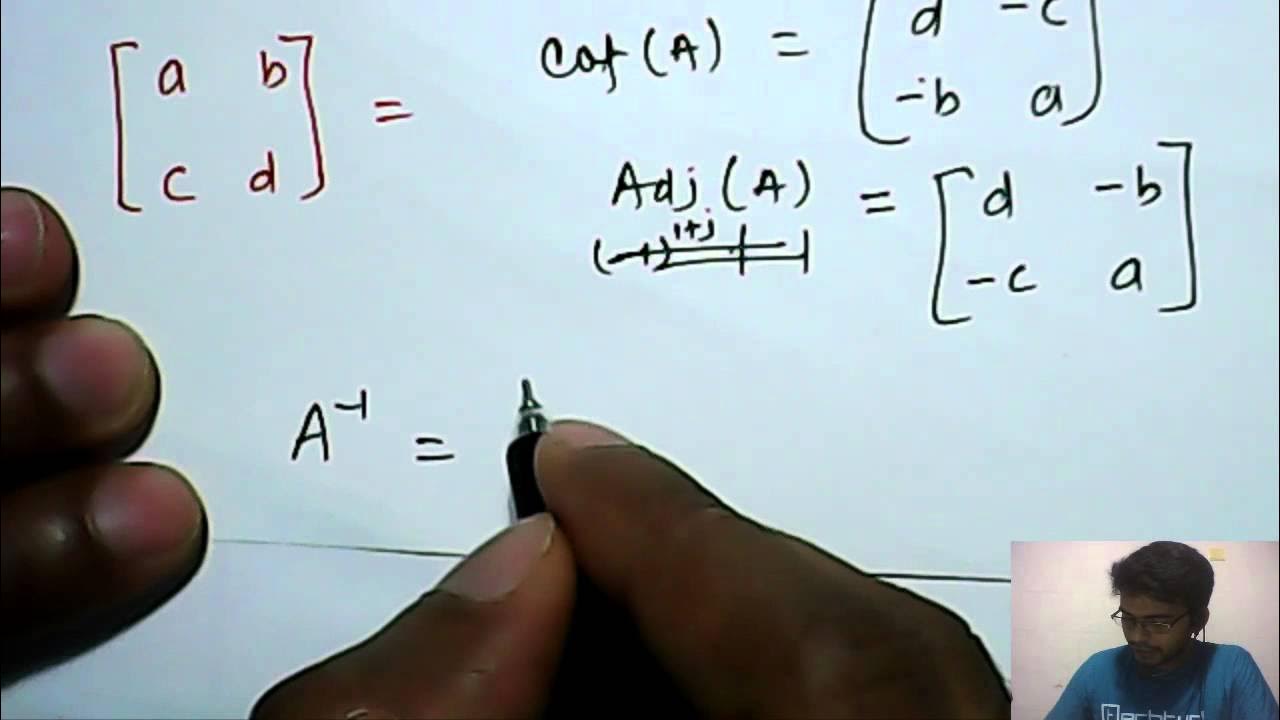 [a b
c d] =
Cof(A) = [d -c
-b a]
Adj(A) = [d -b
-c a]
(-1)^i+j
A^-1 =